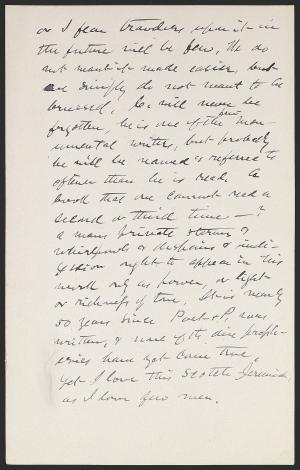 or I fear travelers upon it in
the future will be few. We do
not want it made easier, but
simply do not want to be
bruised, he will never be
forgotten, he is one of the great mon-
umental writers, but probably
he will be named & referred to
oftener than he is read. A
book that one cannot read a
second or third time — ?
a mans private storms &
whirlpools & despairs & indi-
gestion ought to appear in his
work only as power, or light
or richness of tone. It is nearly
50 years since Past & P. was
written, & none of the dire proph-
esies have yet come true.
yet I love this Scotch Jeremiah
as I love few men.